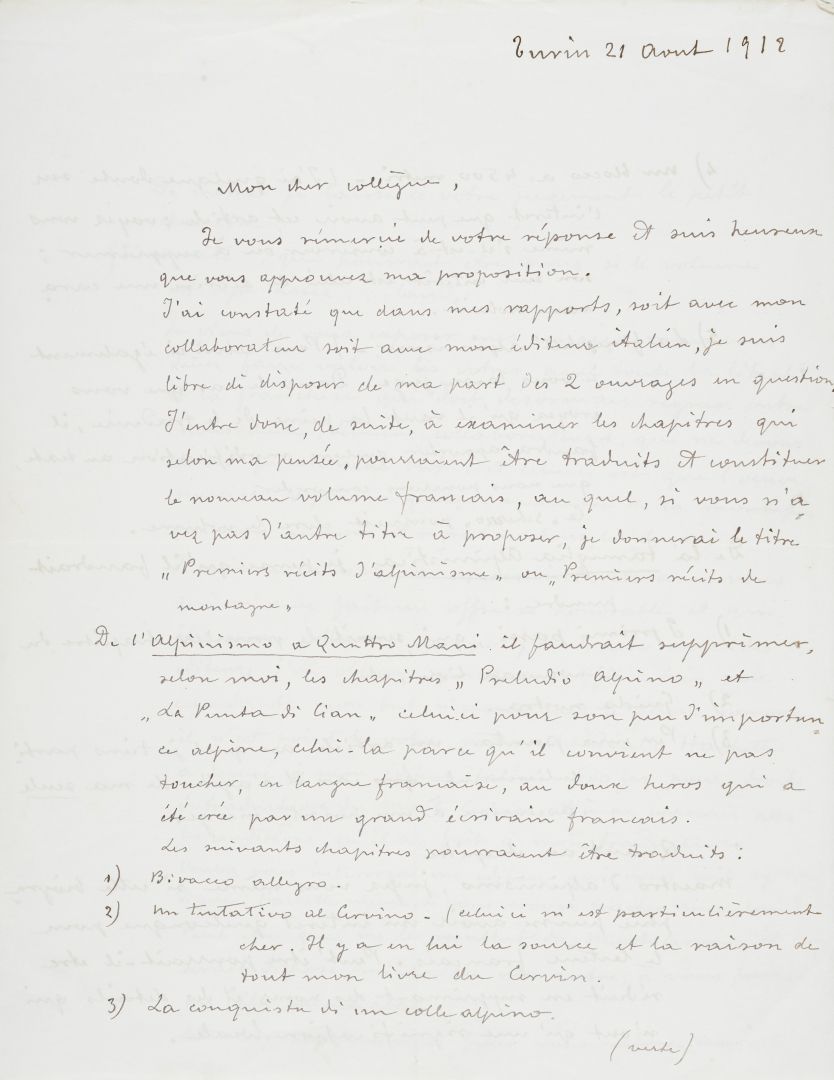 Turin 21 Aout 1912
Mon cher collègue,
Je vous rémercie de votre réponse et suis heureux
que vous approuvez ma proposition.
J'ai constaté que dans mes rapports, soit avec mon
collaborateur soit avec mon éditeur italien, je suis
libre di disposer de ma part des 2 ouvrages en question.
J'entre donc, de suite, à examiner les chapitres qui
selon ma pensée, pourraient être traduits et constituer
le nouveau volume francais, au quel, si vous n'a=
vez pas d'autre titre à proposer, je donnerai le titre
„Premiers récits d'alpinisme„ ou „Premiers récits de
montagne„
De l'Alpinismo a Quattro Mani il faudrait supprimer,
selon moi, les chapitres „Preludio Alpino„ et
„La Punta di Cian„ celui-ci pour son peu d'importan=
ce alpine, celui-la parce qu'il convient ne pas
toucher, en langue francaise, au doux heros qui a
été crée par un grand écrivain francais.
Les suivants chapitres pourraient être traduits:
1) Bivacco allegro.
2) Un tentativo al Cervino - (celui ci m'est particulièrement
cher. Il y a en lui la source et la raison de
tout mon livre du Cervin.
3) La conquista di un colle alpino.
(verte)